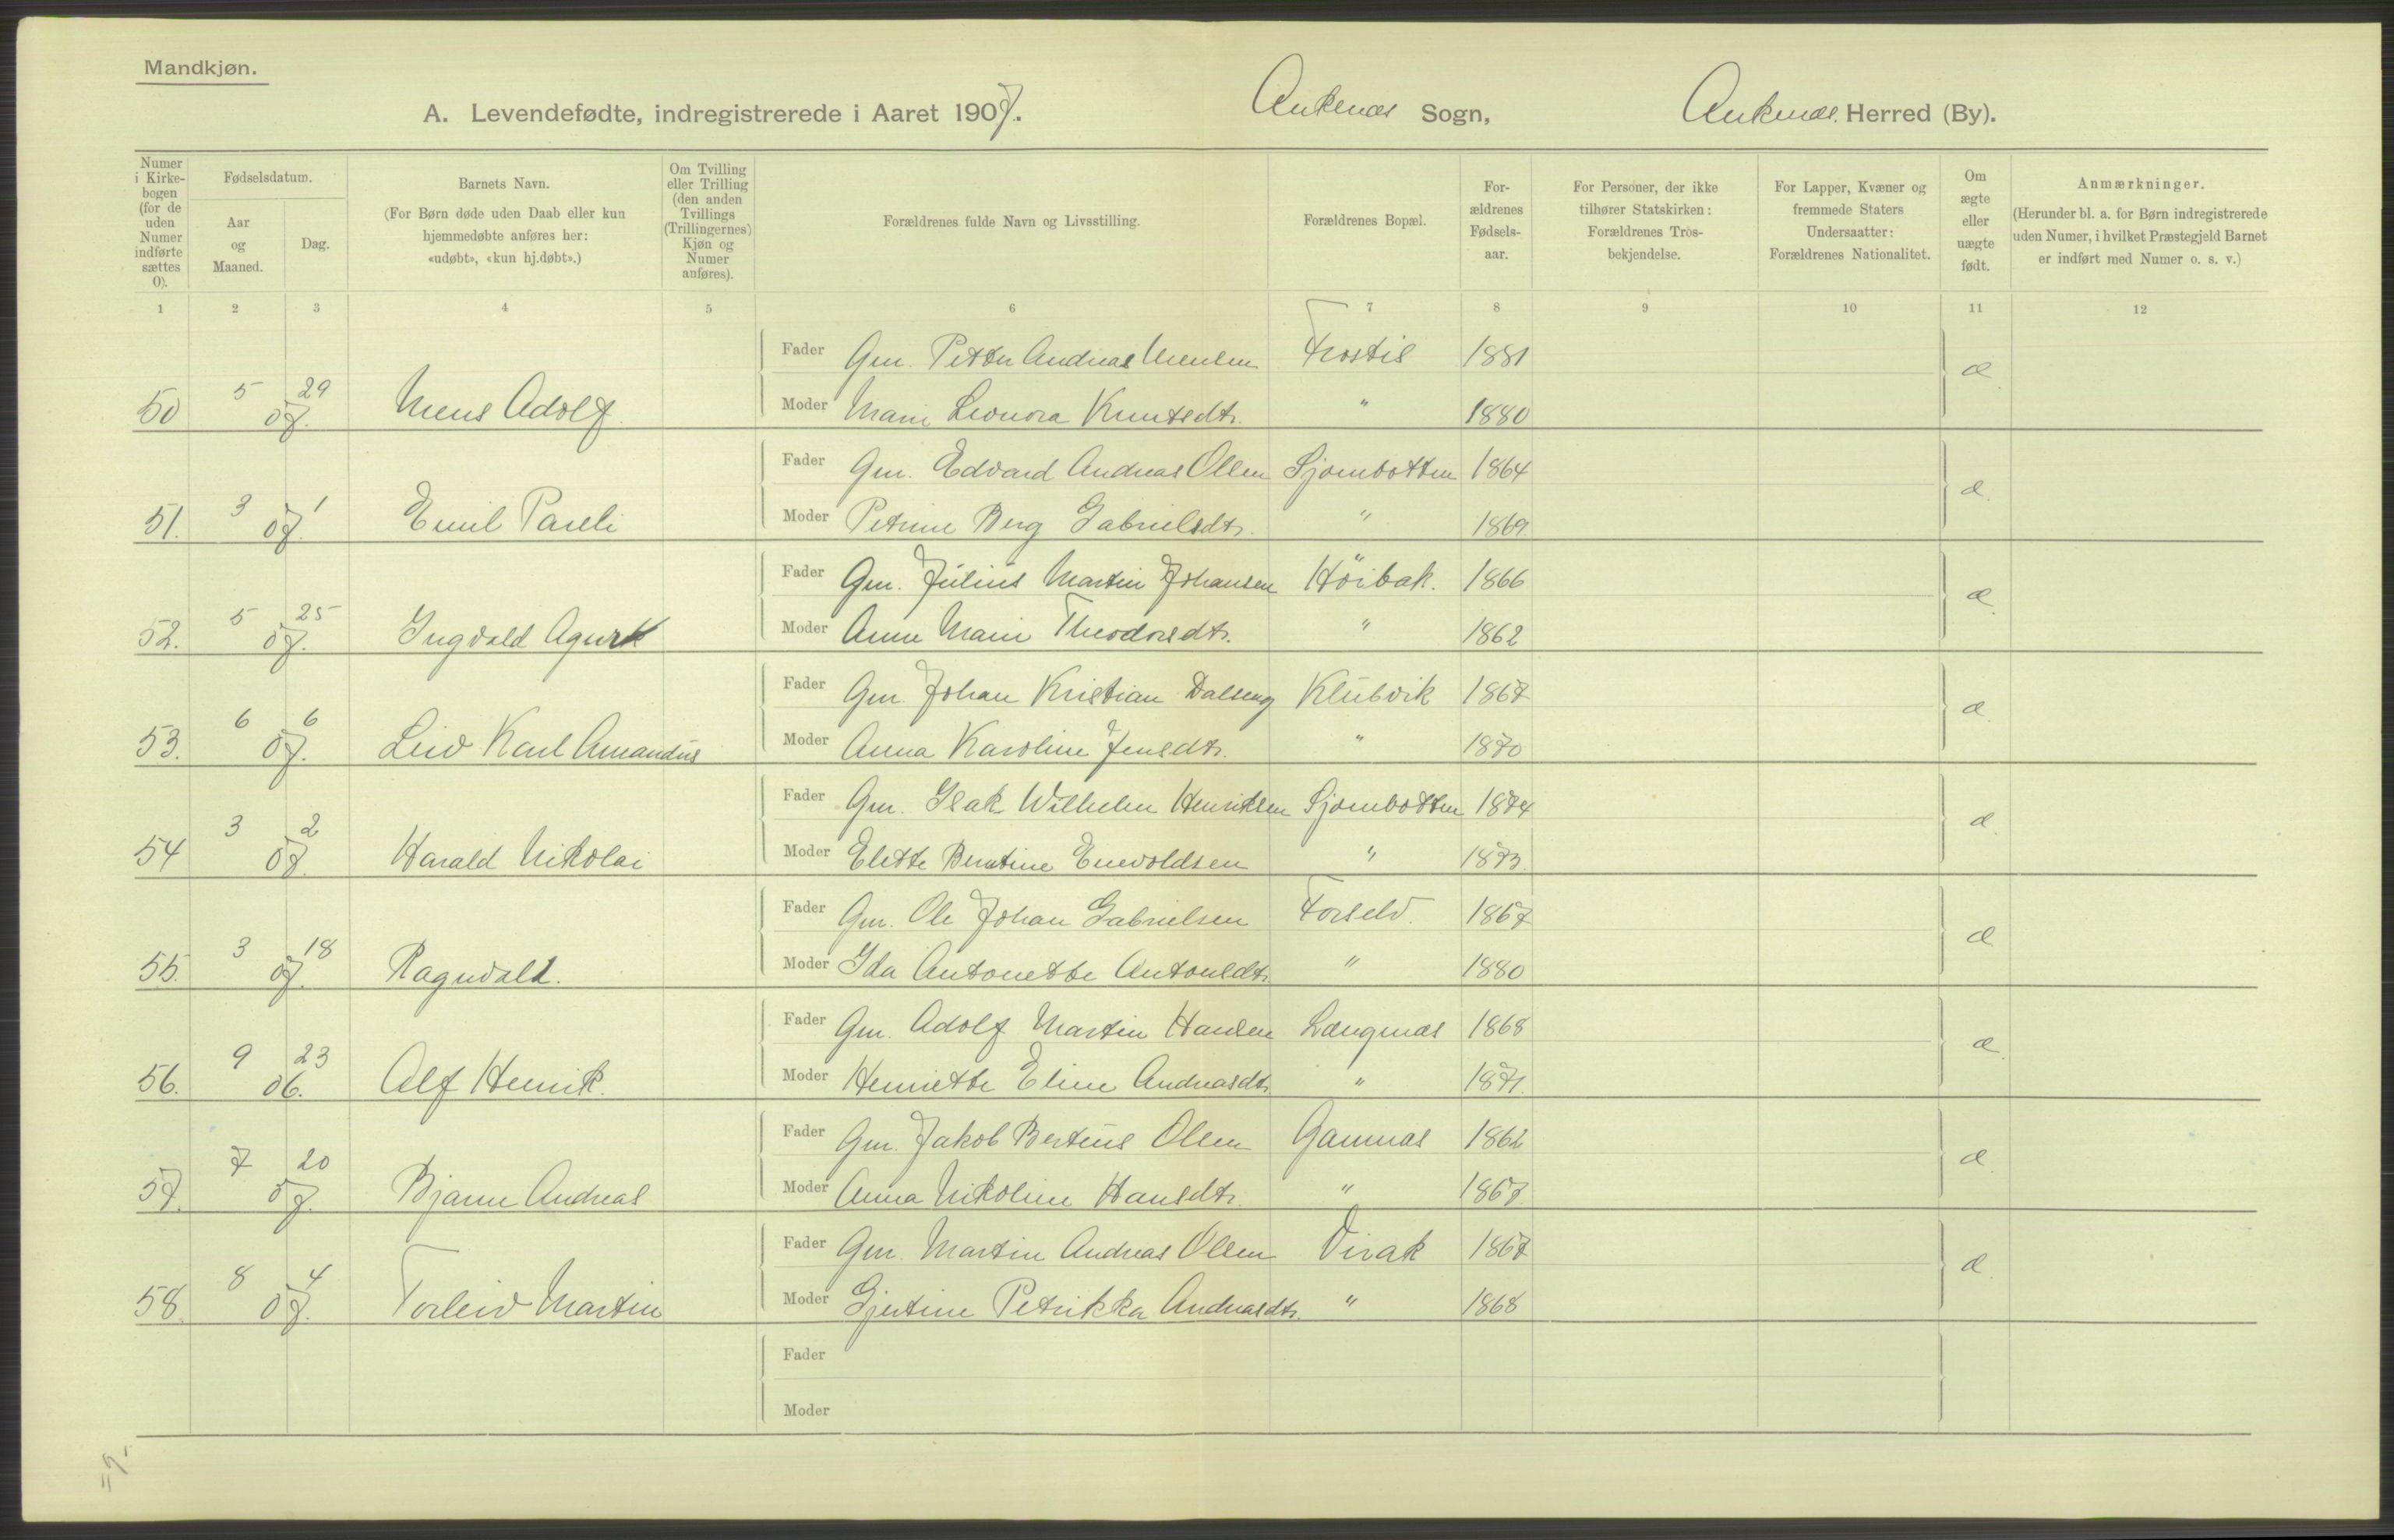 Mandkjøn.
A. Levendefødte, indregistrerede i Aaret 1907. Ankenæs Sogn, Ankenæs Herred (By).
Numer i Kirkebogen (for de uden Numer indførte sættes 0).
Fødselsdatum.
Aar og Maaned.
Dag.
Barnets Navn.
(For Børn døde uden Daab eller kun hjemmedøbte anføres her: «udøbt», «kun hj.døbt».)
Om Tvilling eller Trilling (den anden Tvillings (Trillingernes) Kjøn og Numer anføres).
Forældrenes fulde Navn og Livsstilling.
Forældrenes Bopæl.
Forældrenes Fødselsaar.
For Personer, der ikke tilhører Statskirken: Forældrenes Trosbekjendelse.
For Lapper, Kvæner og fremmede Staters Undersaatter: Forældrenes Nationalitet.
Om ægte eller uægte født.
Anmærkninger.
(Herunder bl. a. for Børn indregistrerede uden Numer, i hvilket Præstegjeld Barnet er indført med Numer o. s. v.)
1 2 3 4 5 6 7 8 9 10 11 12
Fader Gm. Petter Andreas Mensen Frostis 1881 æ
50 5 07. 29 Mens Adolf. Moder Marie Leonora Knutsdtr. " 1880
Fader Gm. Edvard Andreas Olsen Sjombotten 1864 æ.
51. 3 07. 1 Emil Pareli Moder Petrine Berg Gabrielsdtr. " 1869.
Fader Gm. Julius Martin Johansen Höibak. 1866 æ.
52. 5 07. 25 Ingvald Agurk Moder Anne Marie Theodorsdtr. " 1862
Fader Gm. Johan Kristian Dalseng Klubvik 1867 æ.
53. 6 07. 6 Leiv Karl Amandus Moder Anna Karoline Jensdtr. " 1870
Fader Gm. Isak Wilhelm Henriksen Sjombotten 1874 æ.
54 3 07. 2 Harald Nikolai Moder Elette Berntine Enevoldsen " 1873.
Fader Gm. Ole Johan Gabrielsen Forselv. 1867 æ
55. 3 07. 18 Ragnvald. Moder Ida Antonette Antonsdtr " 1880
Fader Gm. Adolf Martin Hansen Længnæs 1868 æ.
56. 9 06. 23 Alf Henrik. Moder Henriette Eline Andreasdtr. " 1871.
Fader Gm. Jakob Berteus Olsen Gamnæs 1862 æ.
57. 7 07. 20 Bjarne Andreas Moder Anna Nikoline Hansdtr. " 1867
Fader Gm. Martin Andreas Olsen Virak 1867 æ.
58. 8 07. 4 Torleiv Martin Moder Gjertine Petrikka Andreasdtr. " 1868
Fader
Moder